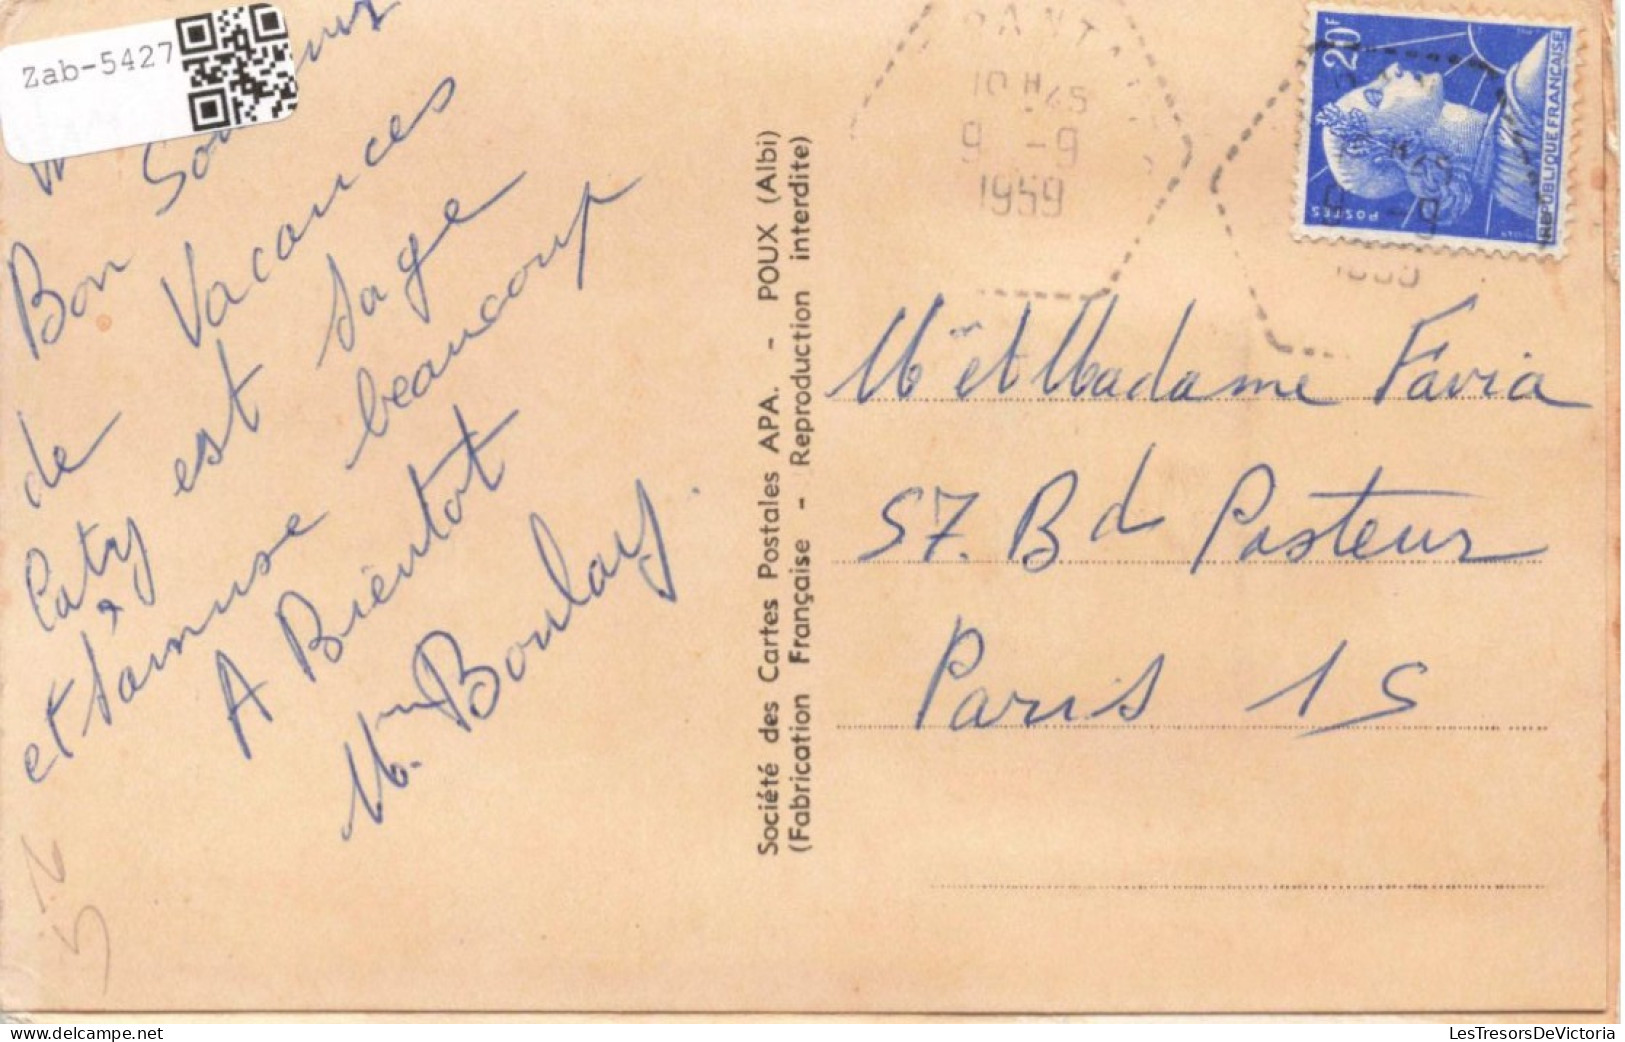 Zab-5427
Bon Souvenir
de Vacances
Caty est sage
et s'amuse beaucoup
A Bientot
Mme Boulay
Société des Cartes Postales APA. - POUX (Albi)
(Fabrication Française - Reproduction interdite)
10 H 45
9 -9
1959
20F
POSTES
REPUBLIQUE FRANÇAISE
H45
9 -9
1959
Mr et Madame Favia
57. Bd Pasteur
Paris 15
LesTresorsDeVictoria
www.delcampe.net